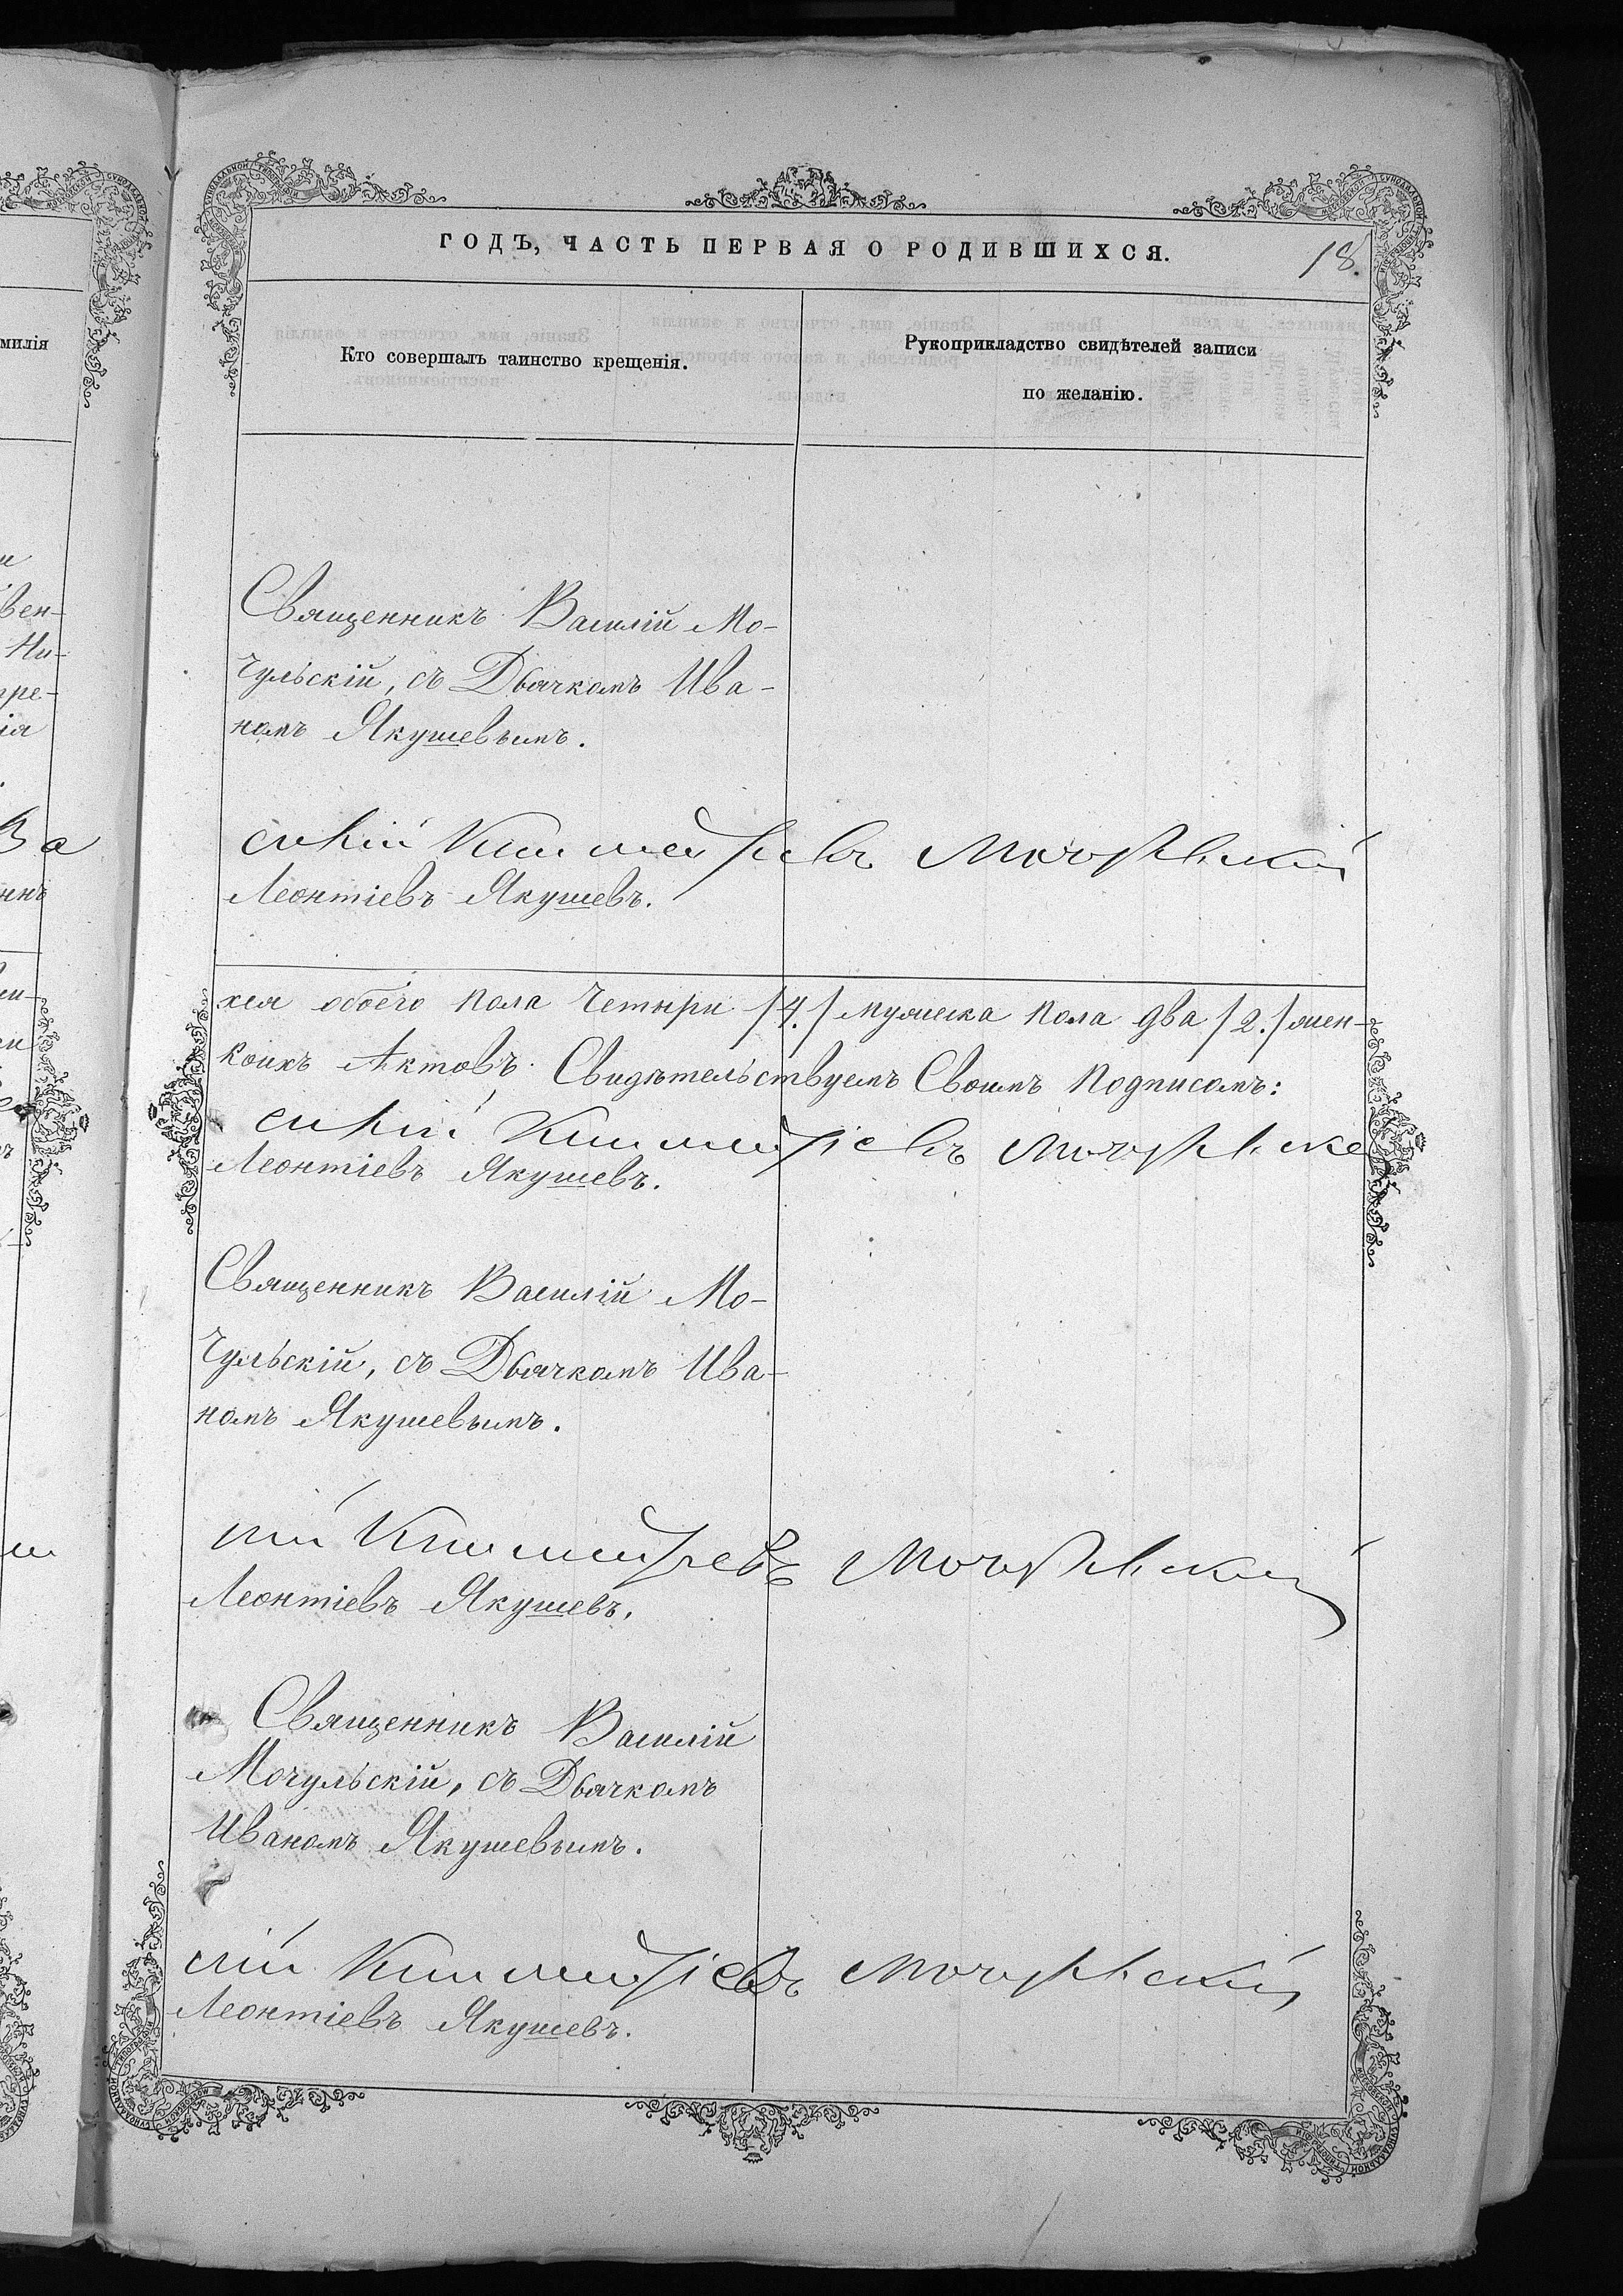 ГОДЪ, ЧАСТЬ ПЕРВАЯ О РОДИВШИХСЯ.
18.
милія
Кто совершалъ таинство крещенія.
Рукоприкладство свидѣтелей записи
по желанію.
Священникъ Василій Мо-
чульскій, съ Дьячкомъ Ива-
номъ Якушевымъ.
Мочульскій
Леонтіевъ Якушевъ.
хся обоего пола четыри /4./ мужеска пола два /2./ жен-
коихъ Актовъ Свидѣтельствуемъ Своимъ Подписомъ:
Леонтіевъ Якушевъ.
Священникъ Василій Мо-
чульскій, съ Дьячкомъ Ива-
номъ Якушевымъ.
Мочульскій
Леонтіевъ Якушевъ.
Священникъ Василій
Мочульскій, съ Дьячкомъ
Иваномъ Якушевымъ.
Мочульскій
Леонтіевъ Якушевъ.